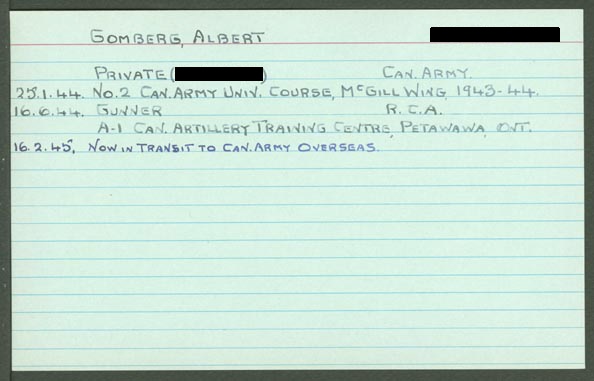 GOMBERG, ALBERT
PRIVATE ( ) CAN. ARMY.
25.1.44. NO.2 CAN. ARMY UNIV. COURSE, McGILL WING, 1943-44.
16.6.44. GUNNER R.C.A.
A-1 CAN. ARTILLERY TRAINING CENTRE, PETAWAWA, ONT.
16.2.45. NOW IN TRANSIT TO CAN. ARMY OVERSEAS.